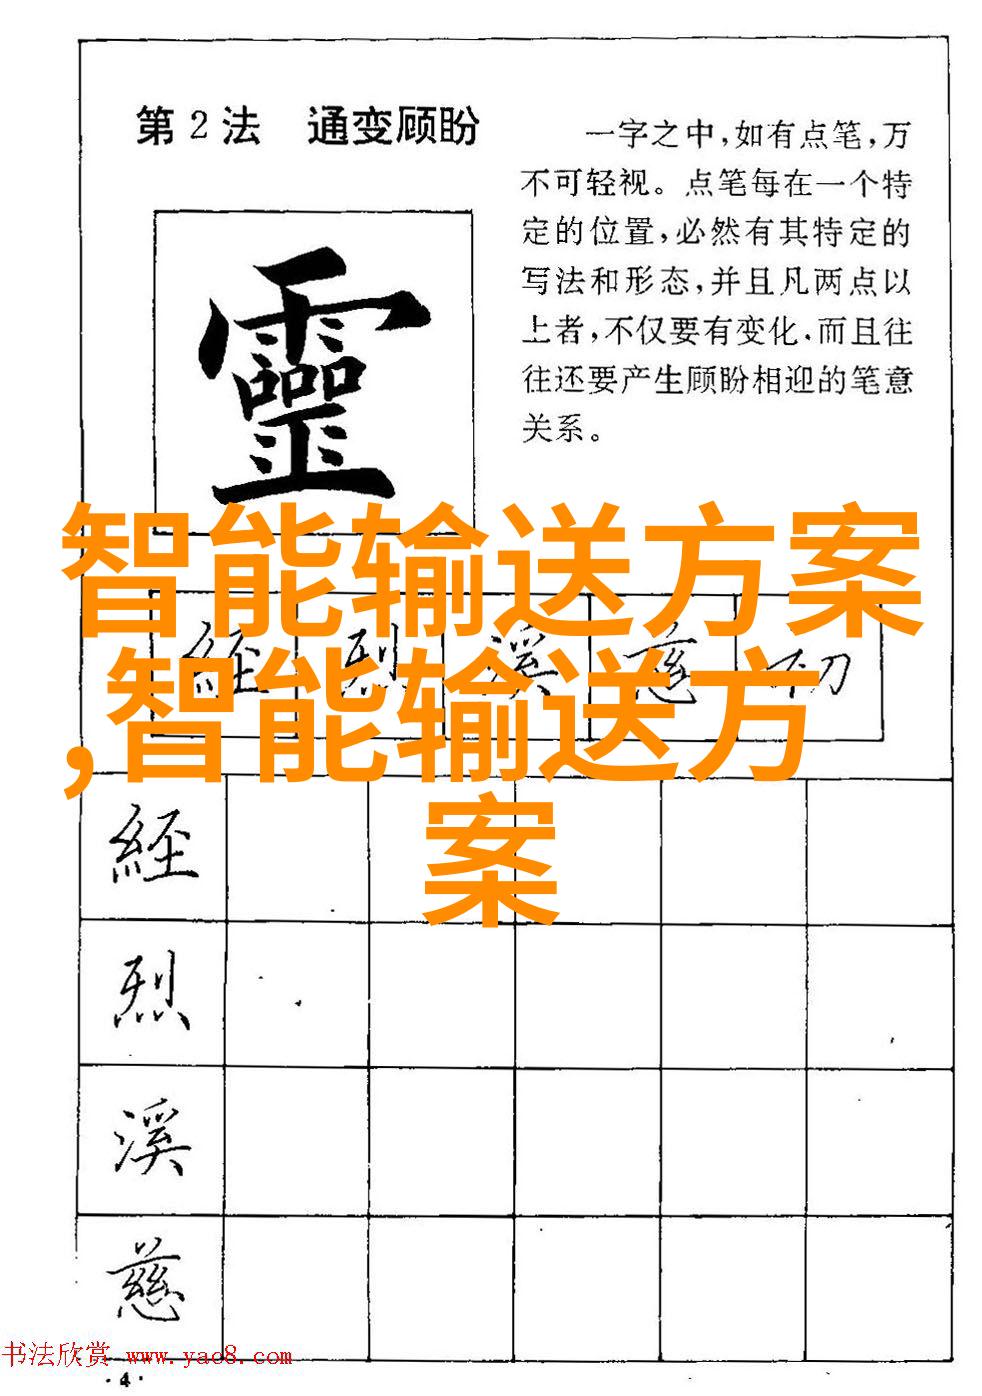 第2法 通变顾盼
一字之中,如有点笔,万
不可轻视。点笔每在一个特
定的位置,必然有其特定的
写法和形态,并且凡两点以
上者,不仅要有变化.而且往
往还要产生顾盼相迎的笔意
关系。
靈
智能输送方案
,智能输送方
案
經 烈 溪 慈 切
經
烈
溪
慈
书法欣赏 www.yao8.com
·4·